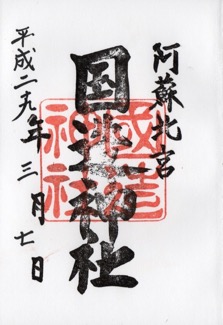 阿蘇北宮
国造神社
平成二十九年三月七日
國造
神社